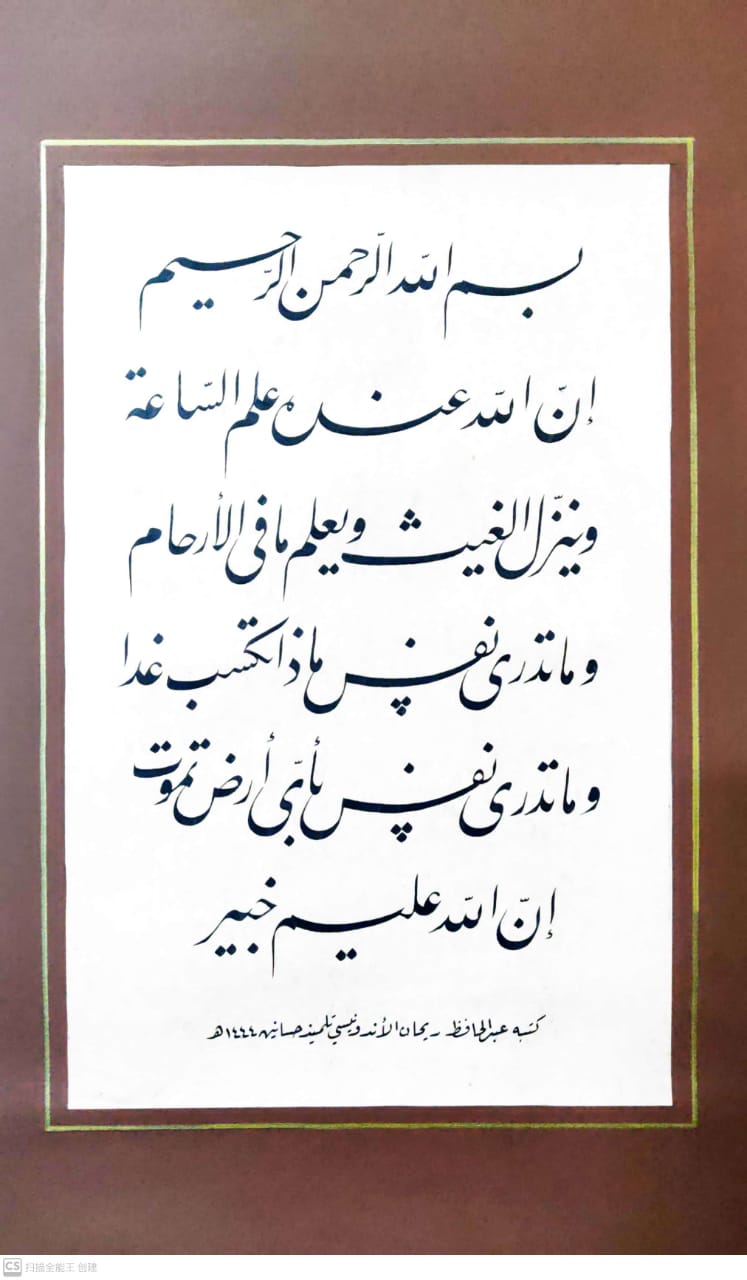 بسم اللّه الرّحمن الرّحيم
إنّ اللّه عنده علم السّاعة
وينزّل الغيث ويعلم ما فى الأرحام
وما تدرى نفس ماذا تكسب غدا
وما تدرى نفس بأىّ أرض تموت
إنّ اللّه عليم خبير
كتبه عبد الحافظ ريحان الأندونيسي تلميذ ١٤٤٤ه
CS 扫描全能王 创建